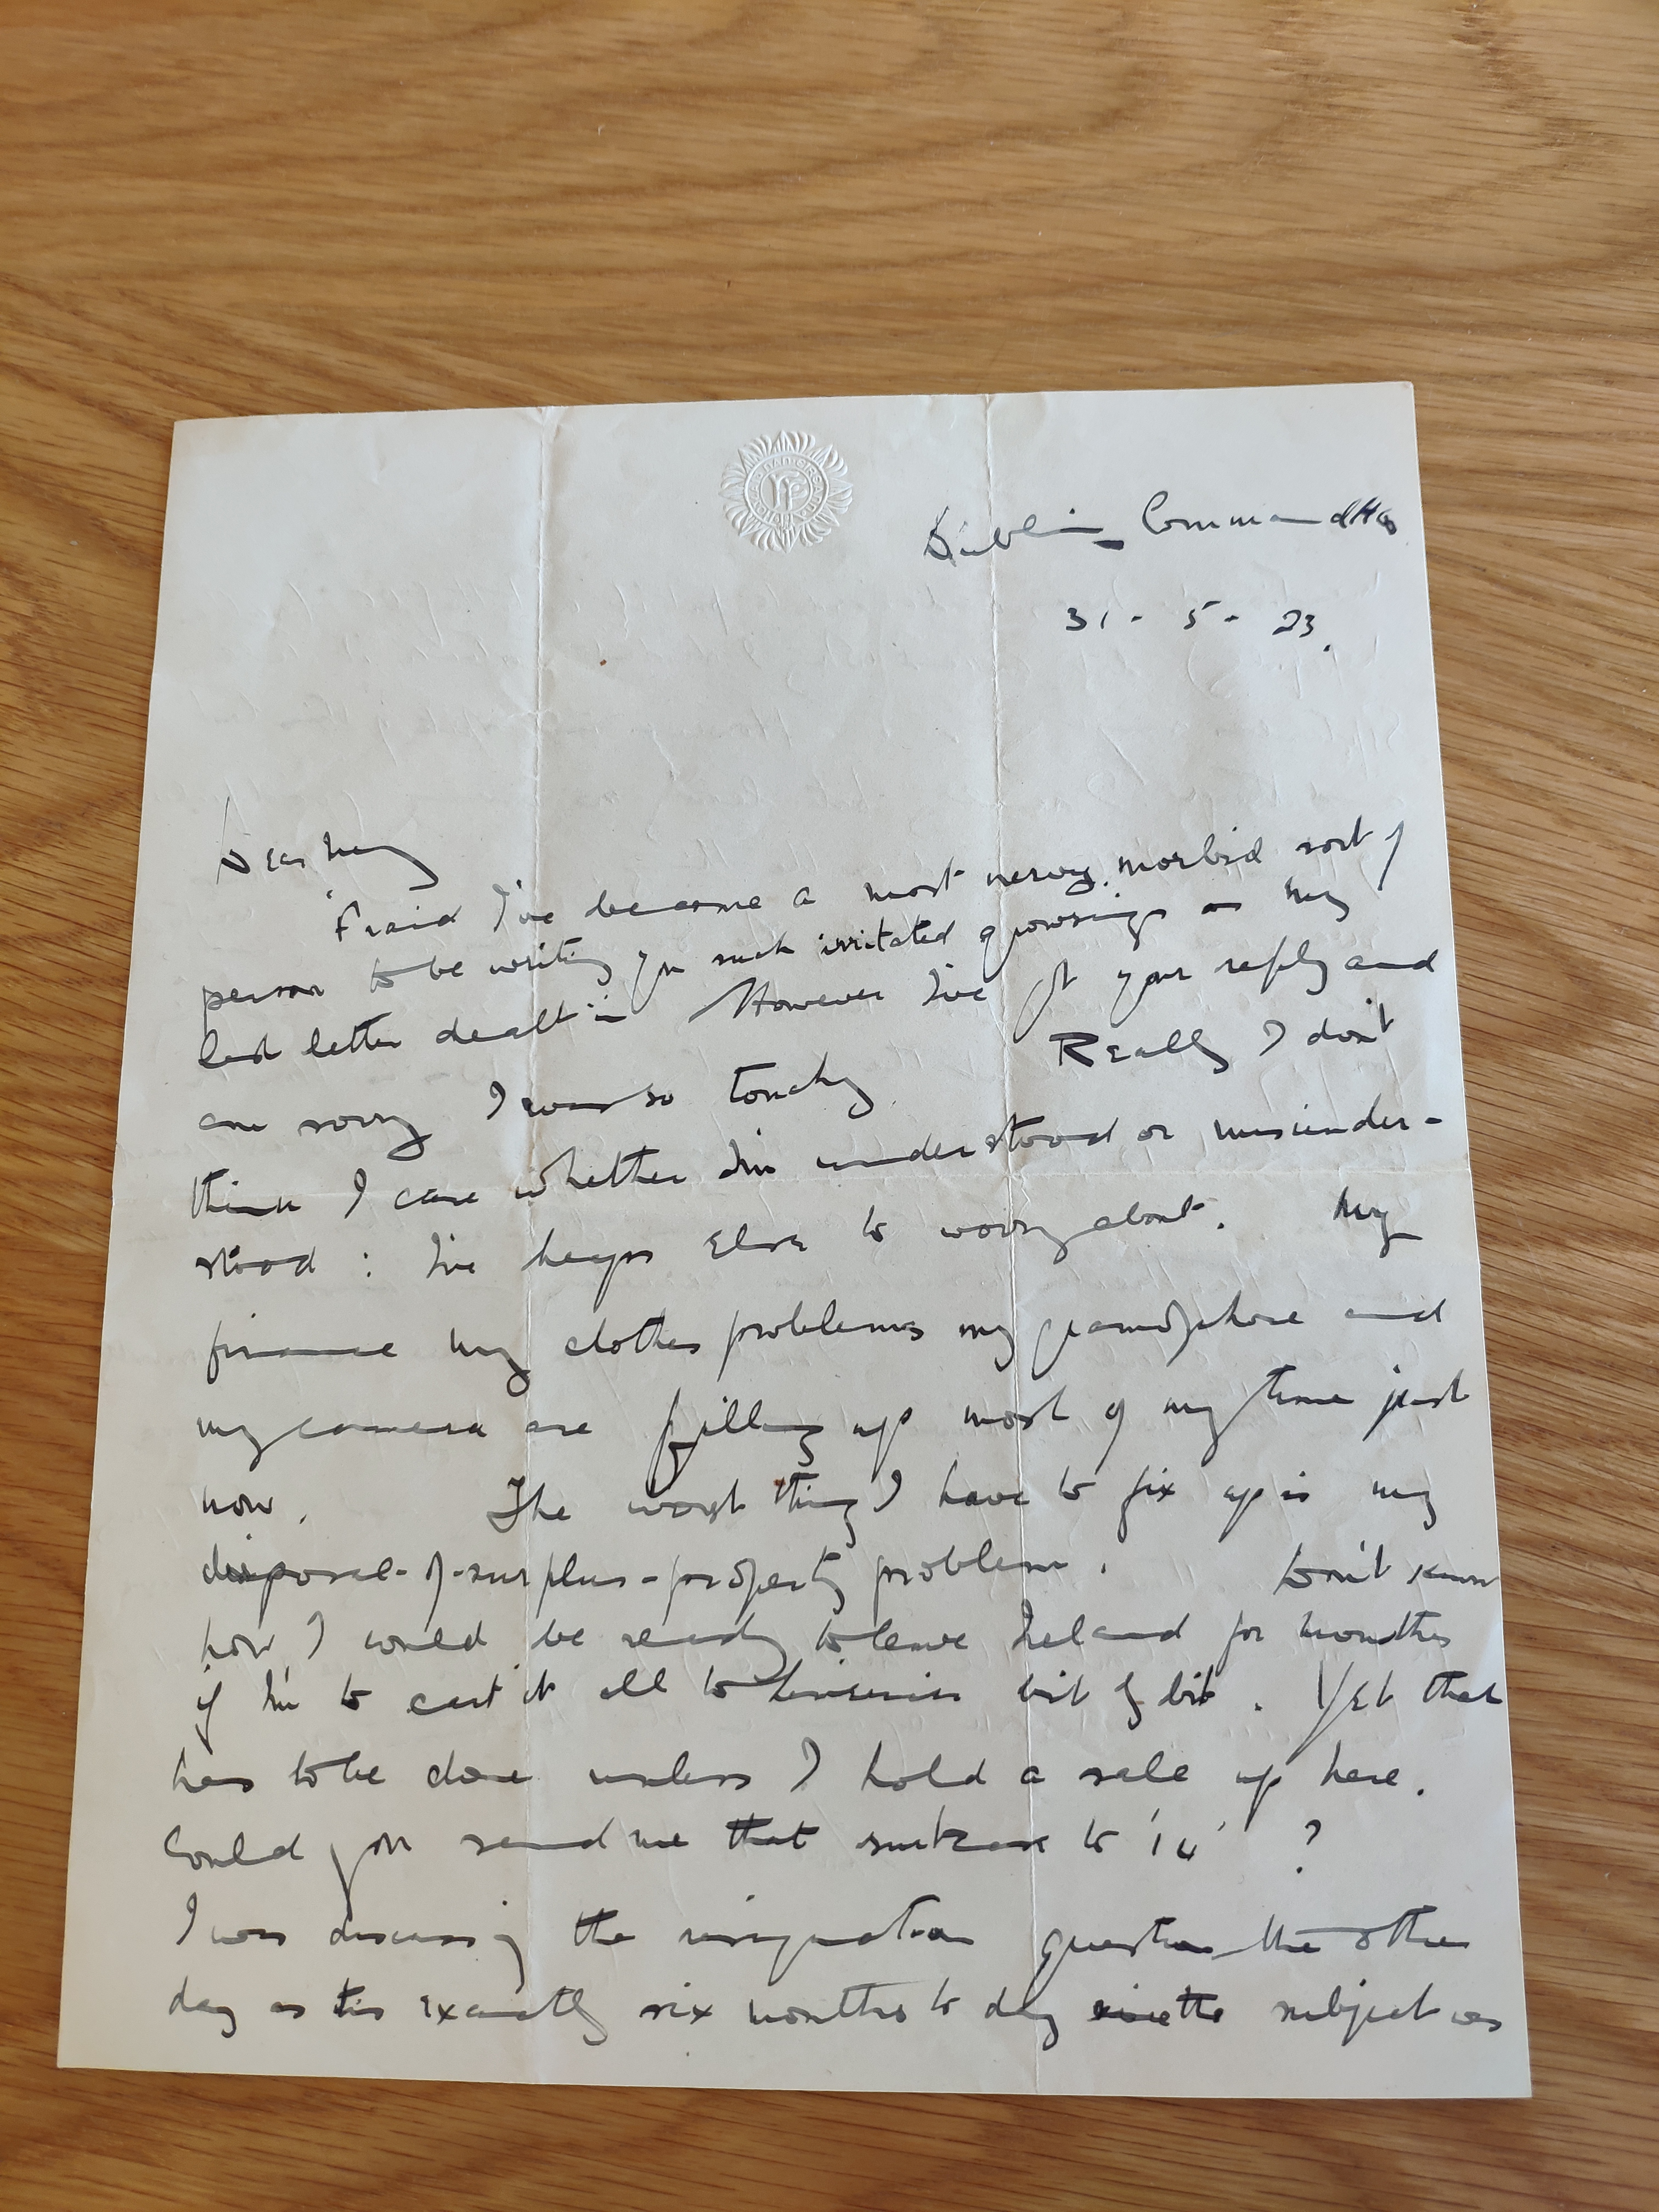 Dublin Command HQ
31 - 5 - 23.
Dear
'Fraid I've become a most nervy, morbid sort of
person to be writing you such irritated grousings as my
last letter dealt in However I've got your reply and
am sorry I was so touchy. Really I don't
think I care whether I'm understood or misunder-
stood : I've heaps else to worry about. My
finance my clothes problems my gramophone and
my camera are filling up most of my time just
now. The worst thing I have to fix up is my
disposal-of-surplus-property problem. Don't know
how I would be ready to leave Ireland for months
if I'm to cart it all to bit by bit. Yet that
has to be done unless I hold a sale up here.
Could you send me that suitcase to '14' ?
I was discussing the resignation question the other
day as tis exactly six months to day since the subject was